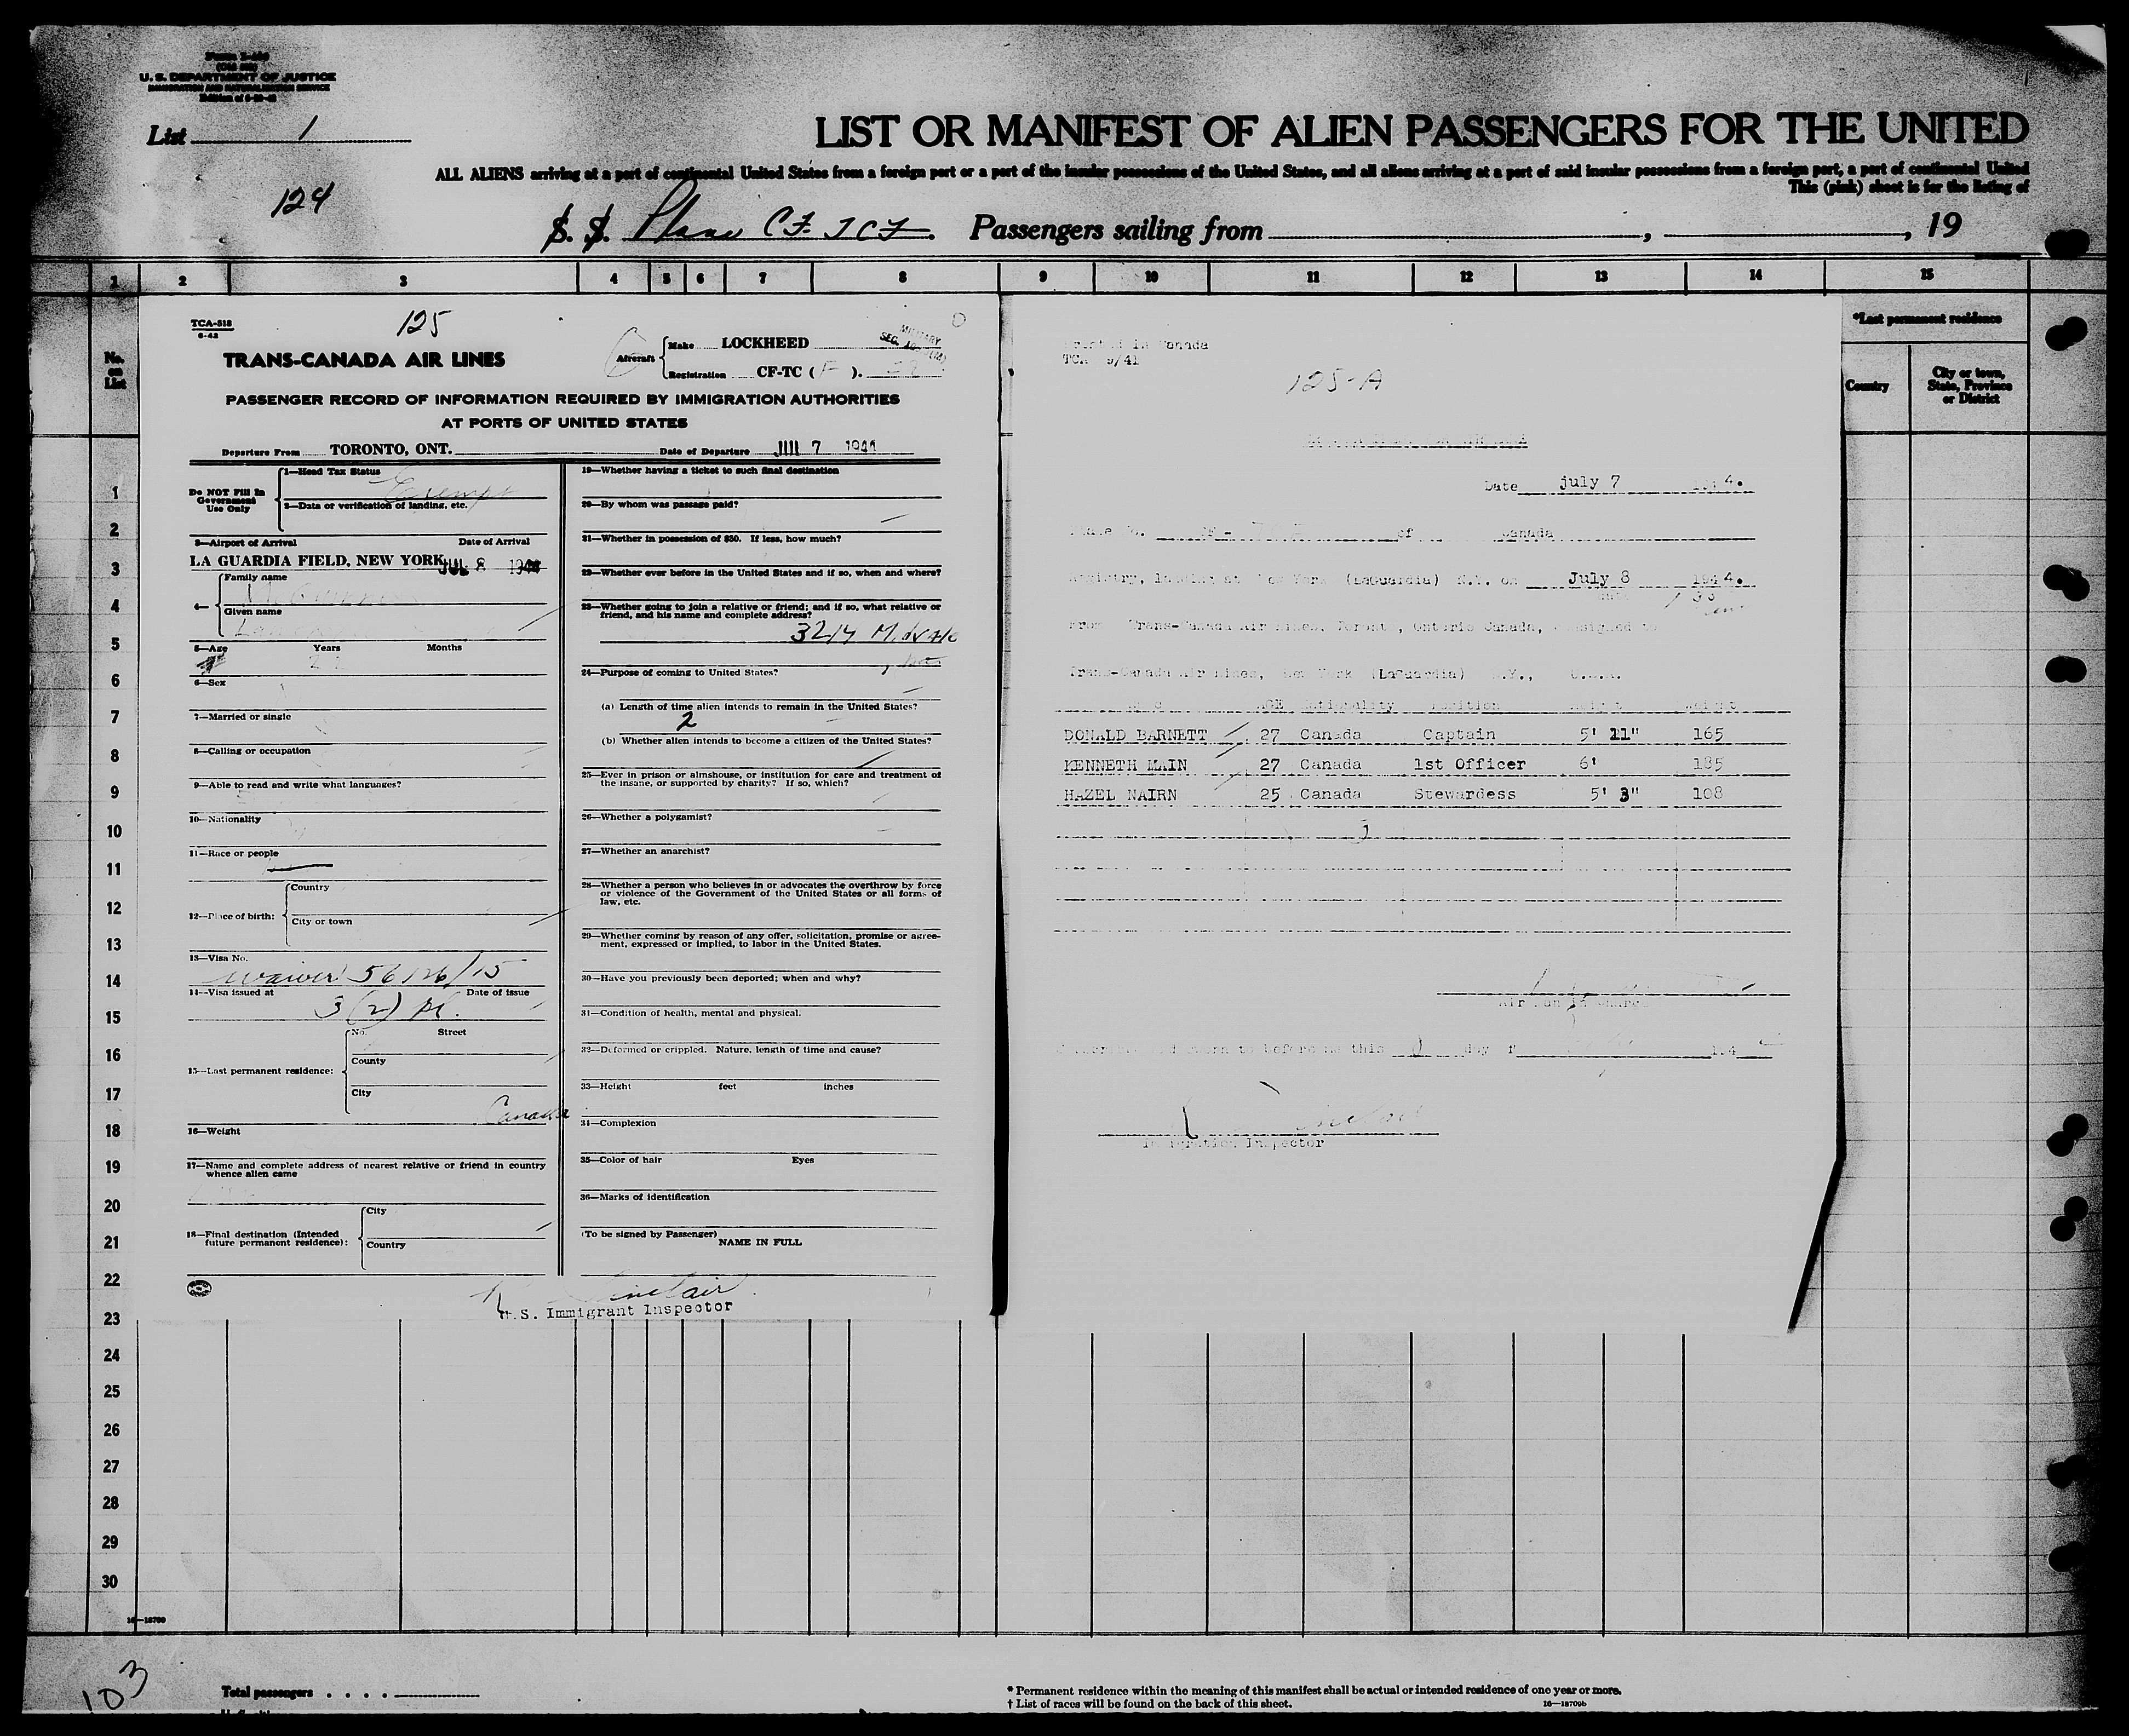 U. S. DEPARTMENT OF JUSTICE
IMMIGRATION AND NATURALIZATION SERVICE
List 1
LIST OR MANIFEST OF ALIEN PASSENGERS FOR THE UNITED
ALL ALIENS arriving at a port of continental United States from a foreign port or a port of the insular possessions of the United States, and all aliens arriving at a port of said insular possessions from a foreign port, a port of continental United
This (pink) sheet is for the listing of
124
S. S. Plane CF. TCF. Passengers sailing from , , 19
1 2 3 4 5 6 7 8 9 10 11 12 13 14 15
No. on List
*Last permanent residence
Country
City or town, State, Province or District
TCA-518
6-43
125
TRANS-CANADA AIR LINES
Aircraft
Make LOCKHEED
Registration CF-TC ( F ).
PASSENGER RECORD OF INFORMATION REQUIRED BY IMMIGRATION AUTHORITIES
AT PORTS OF UNITED STATES
Departure From TORONTO, ONT. Date of Departure 7 1944
Do NOT Fill In Government Use Only
1—Head Tax Status
Exempt
2—Data or verification of landing, etc.
3—Airport of Arrival Date of Arrival
LA GUARDIA FIELD, NEW YORK JUL 8 1944
4—
Family name
Given name
5—Age Years Months
6—Sex
7—Married or single
8—Calling or occupation
9—Able to read and write what languages?
10—Nationality
11—Race or people
12—Place of birth:
Country
City or town
13—Visa No.
waiver 56126/15
14—Visa issued at Date of issue
3 (2) pl.
15—Last permanent residence:
No. Street
County
City
Canada
16—Weight
17—Name and complete address of nearest relative or friend in country
whence alien came
18—Final destination (Intended
future permanent residence):
City
Country
19—Whether having a ticket to such final destination
20—By whom was passage paid?
21—Whether in possession of $50. If less, how much?
22—Whether ever before in the United States and if so, when and where?
23—Whether going to join a relative or friend; and if so, what relative or
friend, and his name and complete address?
3214 Midvale
24—Purpose of coming to United States?
(a) Length of time alien intends to remain in the United States?
2
(b) Whether alien intends to become a citizen of the United States?
25—Ever in prison or almshouse, or institution for care and treatment of
the insane, or supported by charity? If so, which?
26—Whether a polygamist?
27—Whether an anarchist?
28—Whether a person who believes in or advocates the overthrow by force
or violence of the Government of the United States or all forms of
law, etc.
29—Whether coming by reason of any offer, solicitation, promise or agree-
ment, expressed or implied, to labor in the United States.
30—Have you previously been deported; when and why?
31—Condition of health, mental and physical.
32—Deformed or crippled. Nature, length of time and cause?
33—Height feet inches
34—Complexion
35—Color of hair Eyes
36—Marks of identification
(To be signed by Passenger)
NAME IN FULL
Sinclair
U.S. Immigrant Inspector
Printed in Canada
TCA 9/41
125-A
Date july 7 1944.
Plane No. CF- of Canada
Registry, landing at New York (LaGuardia) N.Y. on July 8 1944.
From Trans-Canada Air Lines, Toronto, Ontario Canada, consigned to
Trans-Canada Air Lines, New York (LaGuardia) N.Y., U.S.A.
Name AGE Nationality Position Height Weight
DONALD BARNETT 27 Canada Captain 5' 11" 165
KENNETH MAIN 27 Canada 1st Officer 6' 185
HAZEL NAIRN 25 Canada Stewardess 5' 3" 108
Airman in Charge
Subscribed and sworn to before me this day of 194
Sinclair
Immigration Inspector
1
2
3
4
5
6
7
8
9
10
11
12
13
14
15
16
17
18
19
20
21
22
23
24
25
26
27
28
29
30
16—18709
103
Total passengers . . . .
* Permanent residence within the meaning of this manifest shall be actual or intended residence of one year or more.
† List of races will be found on the back of this sheet.
16—18709b